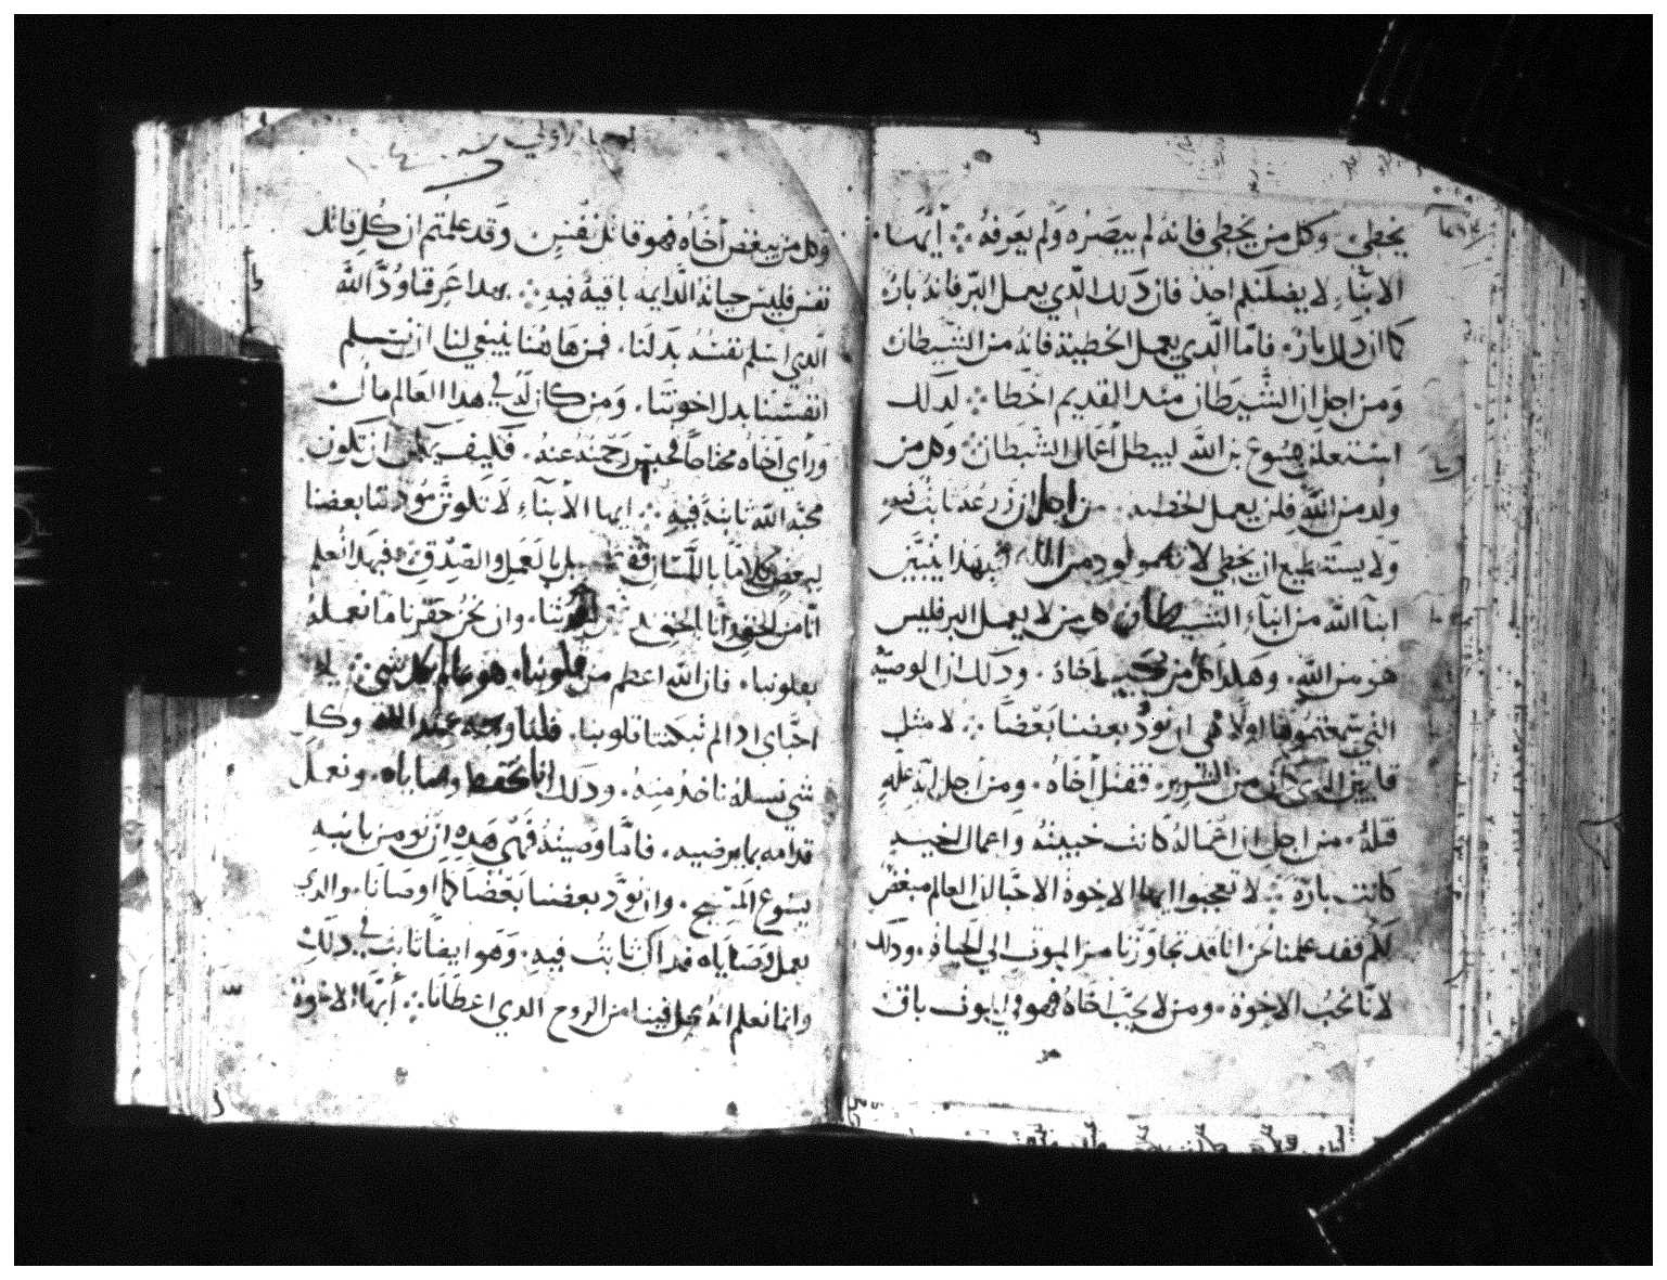 يخطي، وكل من يخطي فانه لم يبصره ولم يعرفه ۞ أيها
الابناء لا يضلنكم احد فان ذلك الذي يعمل البر فانه باره
كما ان ذلك باره فاما الذي يعمل الخطية فانه من الشيطان
ومن اجل ان الشيطان منذ القديم اخطا ۞ لذلك
استعلن يسوع بن الله ليبطل أعمال الشيطان ۞ وكل من
ولد من الله فلن يعمل الخطيه من اجل ان زرعه ثابت فيه
ولا يستطيع ان يخطي لانه مولود من الله فبهذا يتبين
ابنا الله من ابناء الشيطان كل من لا يعمل البر فليس
هو من الله، وهكذا كل من لا يحب اخاه. وذلك ان الوصيه
التي سمعتموها اولا هي ان نود بعضنا بعضا ۞ لا مثل
قايين الذي كان من الشرير. فقتل أخاه. ومن أجل اية عله
قتله. من اجل ان اعماله كانت خبيثه واعمال اخيه
كانت باره ۞ لا تعجبوا ايها الاخوة الاحبا ان العالم مبغض
لكم فقد علمنا نحن انا قد تجاوزنا من الموت الي الحياة. وذلك
لانا نحب الاخوة. ومن لا يحب اخاه فهو في الموت باق
وكل من يبغض أخاه فهو قاتل نفس. وقد علمتم ان كل قاتل
نفس فليس حياته الدايمه باقية فيه ۞ بهدا عرفنا ود الله
الذي اسلم نفسه بدلنا. فمن هاهنا ينبغي لنا ان نسلم
انفسنا بدل اخوتنا. ومن كان له في هدا العالم مال
وراي اخاه محتاجا فحبس رحمته عنه. فكيف يمكن ان تكون
محبه الله ثابتة فيه ۞ ايها الأبناء لا تكون مودتنا بعضنا
لبعض كلاما باللسان فقط بل بالعمل والصدق. فبهذا نعلم
انا من الحق وانا وان نحن حقرنا ما نعمله
بقلوبنا. فان الله اعظم من قلوبنا، هو عالم بكل شي ۞ يا
احباي ادا لم تبكتنا قلوبنا. فلنا وجه عند الله وكل
شي نسله ناخذ منه. وذلك انا نحفظ وصاياه. ونعمل
قدامه بما يرضيه. فاما وصيته فهي هذه ان نومن بابنه
يسوع المسيح. وان نود بعضنا بعضا كما اوصانا. والذي
يعمل وصاياه فداك ثابت فيه. وهو ايضا ثابت في ذلك
وانما نعلم انه يحل فينا من الروح الذي اعطانا ۞ أيها الاخوة